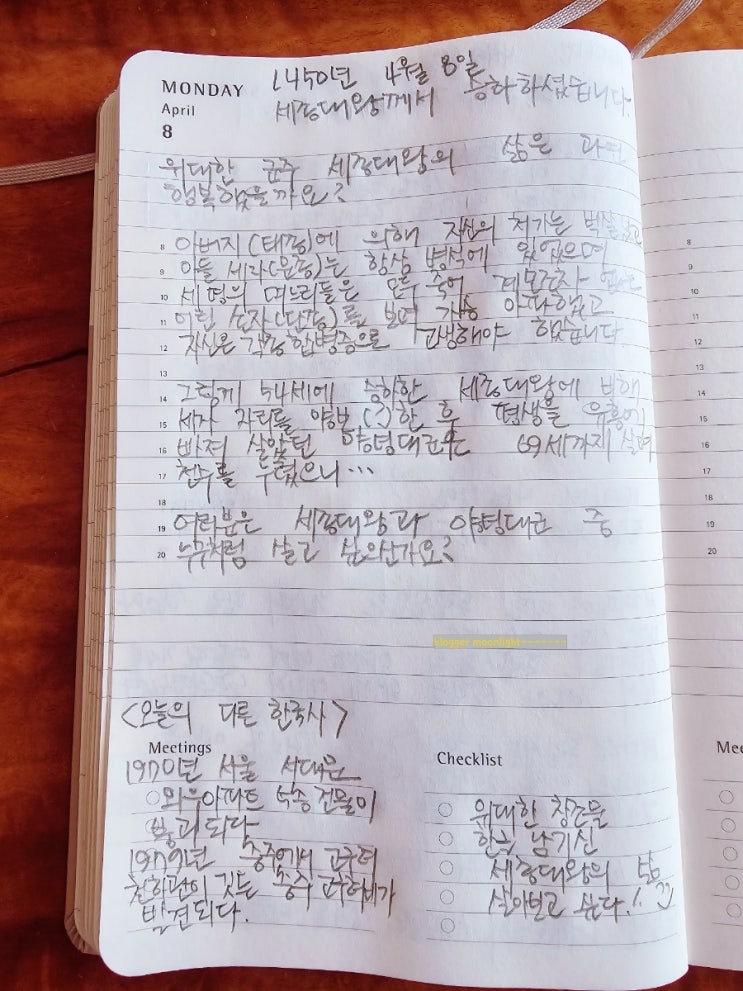 MONDAY
April
8
1450년 4월 8일
세종대왕께서 승하하셨습니다.
위대한 군주 세종대왕의 삶은 과연
행복했을까요?
8 아버지(태종)에 의해 자신의 처가는 박살났고
9 아들 세자(문종)는 항상 병석에 있었으며
10 세 명의 며느리들은 모두 죽어 계모조차 없는
11 어린 손자(단종)를 보며 가슴 아파했고
12 자신은 각종 합병증으로 고생해야 했습니다.
13
14 그렇게 54세에 승하한 세종대왕에 비해
15 세자 자리를 양보(?)한 후 평생을 유흥에
16 빠져 살았던 양녕대군은 69세까지 살며
17 천수를 누렸으니…
18
19 여러분은 세종대왕과 양녕대군 중
20 누구처럼 살고 싶으신가요?
blogger moonlight~~~~~~~
<오늘의 다른 한국사>
Meetings
1970년 서울 서대문
와우아파트 5층 건물이
붕괴되다
1979년 충주에서 고구려
천하관이 깃든 충주 고구려비가
발견되다.
Checklist
위대한 창조물
한글 남기신
세종대왕의 삶
살아보고 싶다!
8
9
10
11
12
13
14
15
16
17
18
19
20
Mee